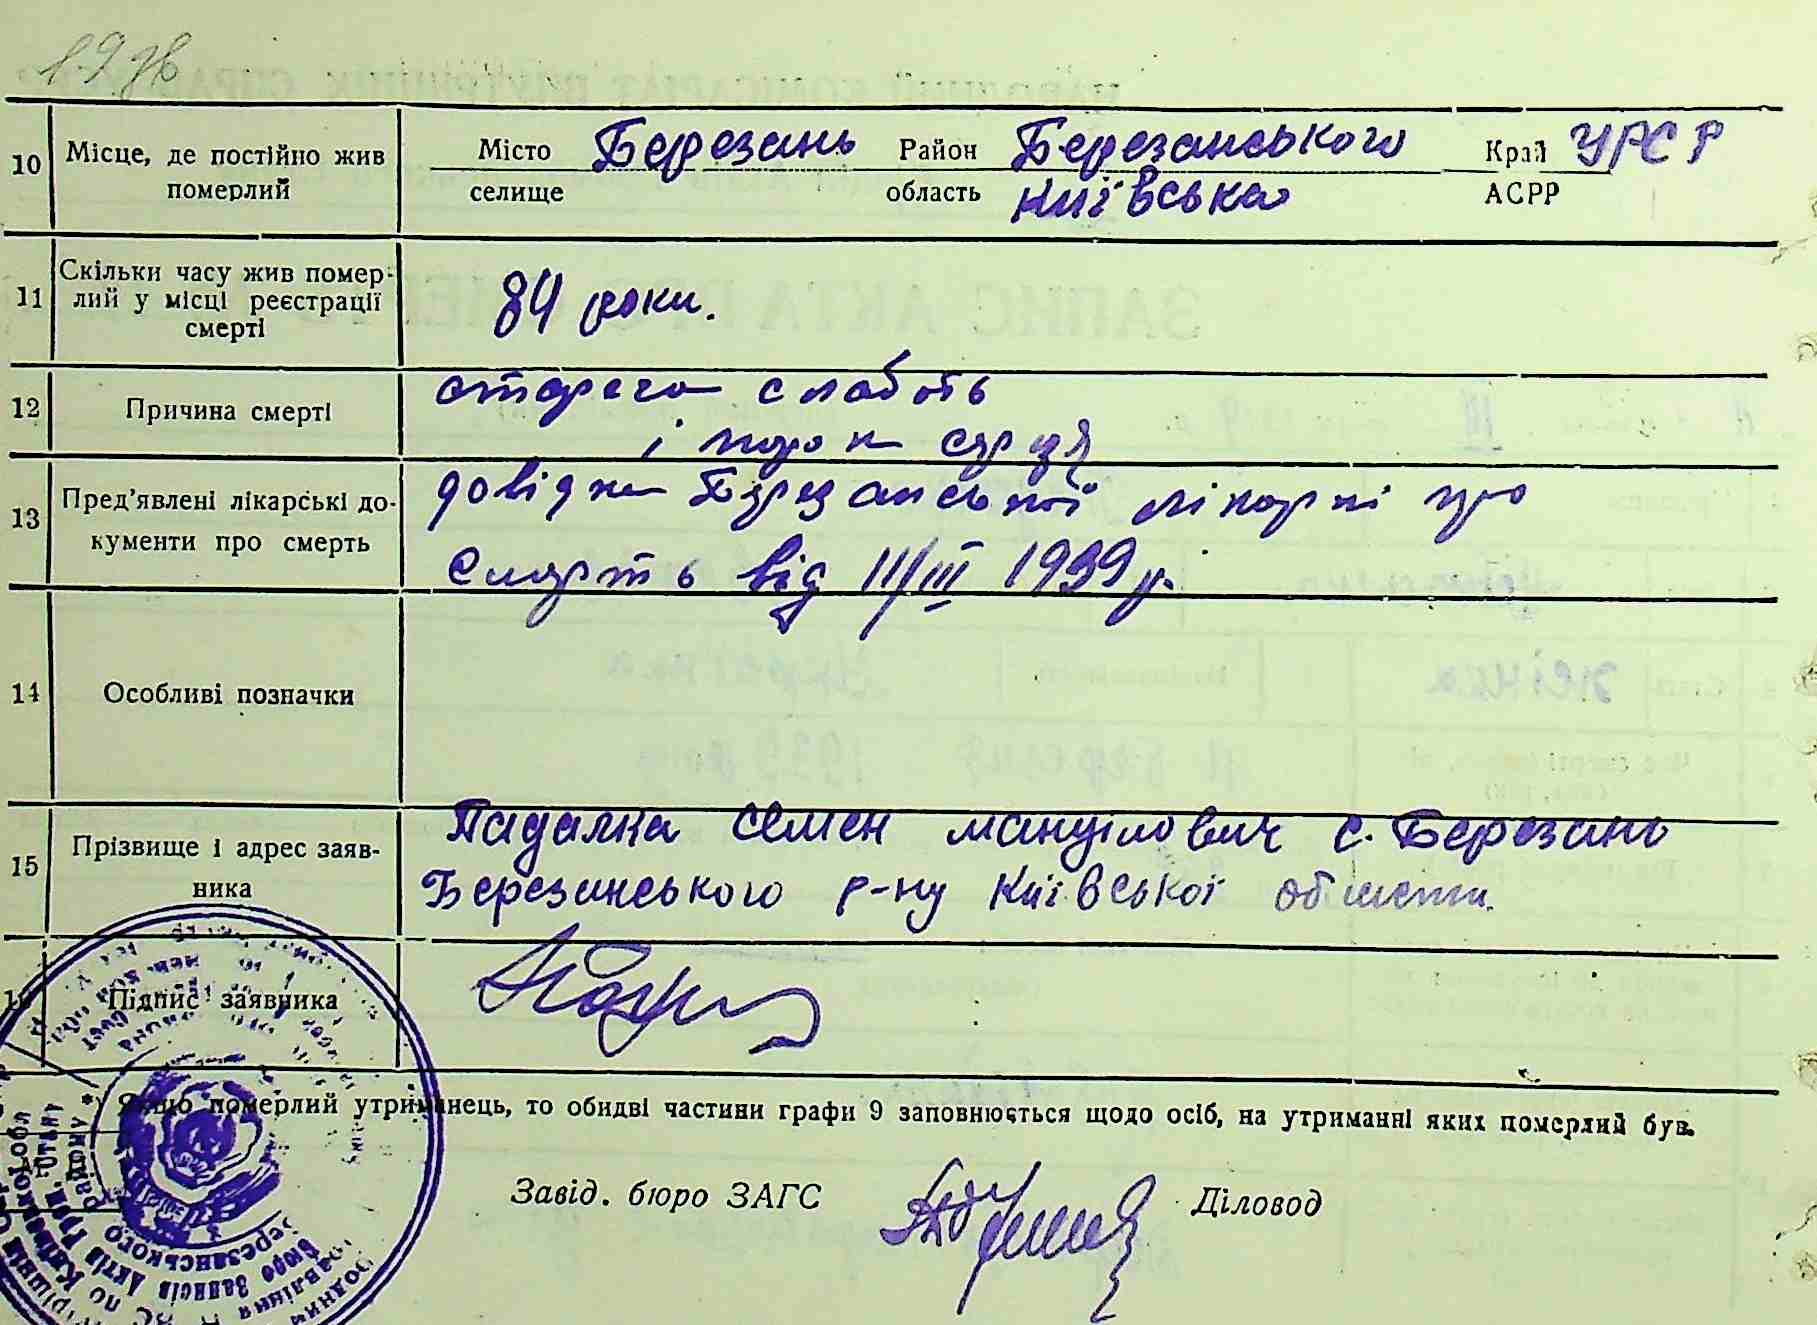 10 Місце, де постійно жив Місто Березань Район Березанського Край УРСР
померлий селище область Київська АСРР
11 Скільки часу жив помер-
лий у місці реєстрації 84 роки.
смерті
12 Причина смерті стареча слабость
і порок серця
13 Пред'явлені лікарські до- довідка Березанської лікарні про
кументи про смерть смерть від 11/III 1939 р.
14 Особливі позначки
15 Прізвище і адрес заяв- Падалка Семен Мануілович с. Березань
ника Березанського р-ну Київської області.
Підпис заявника
Якщо померлий утриманець, то обидві частини графи 9 заповнюється щодо осіб, на утриманні яких померлий був.
Завід. бюро ЗАГС Діловод
Бюро Записів Актів
Березанського району